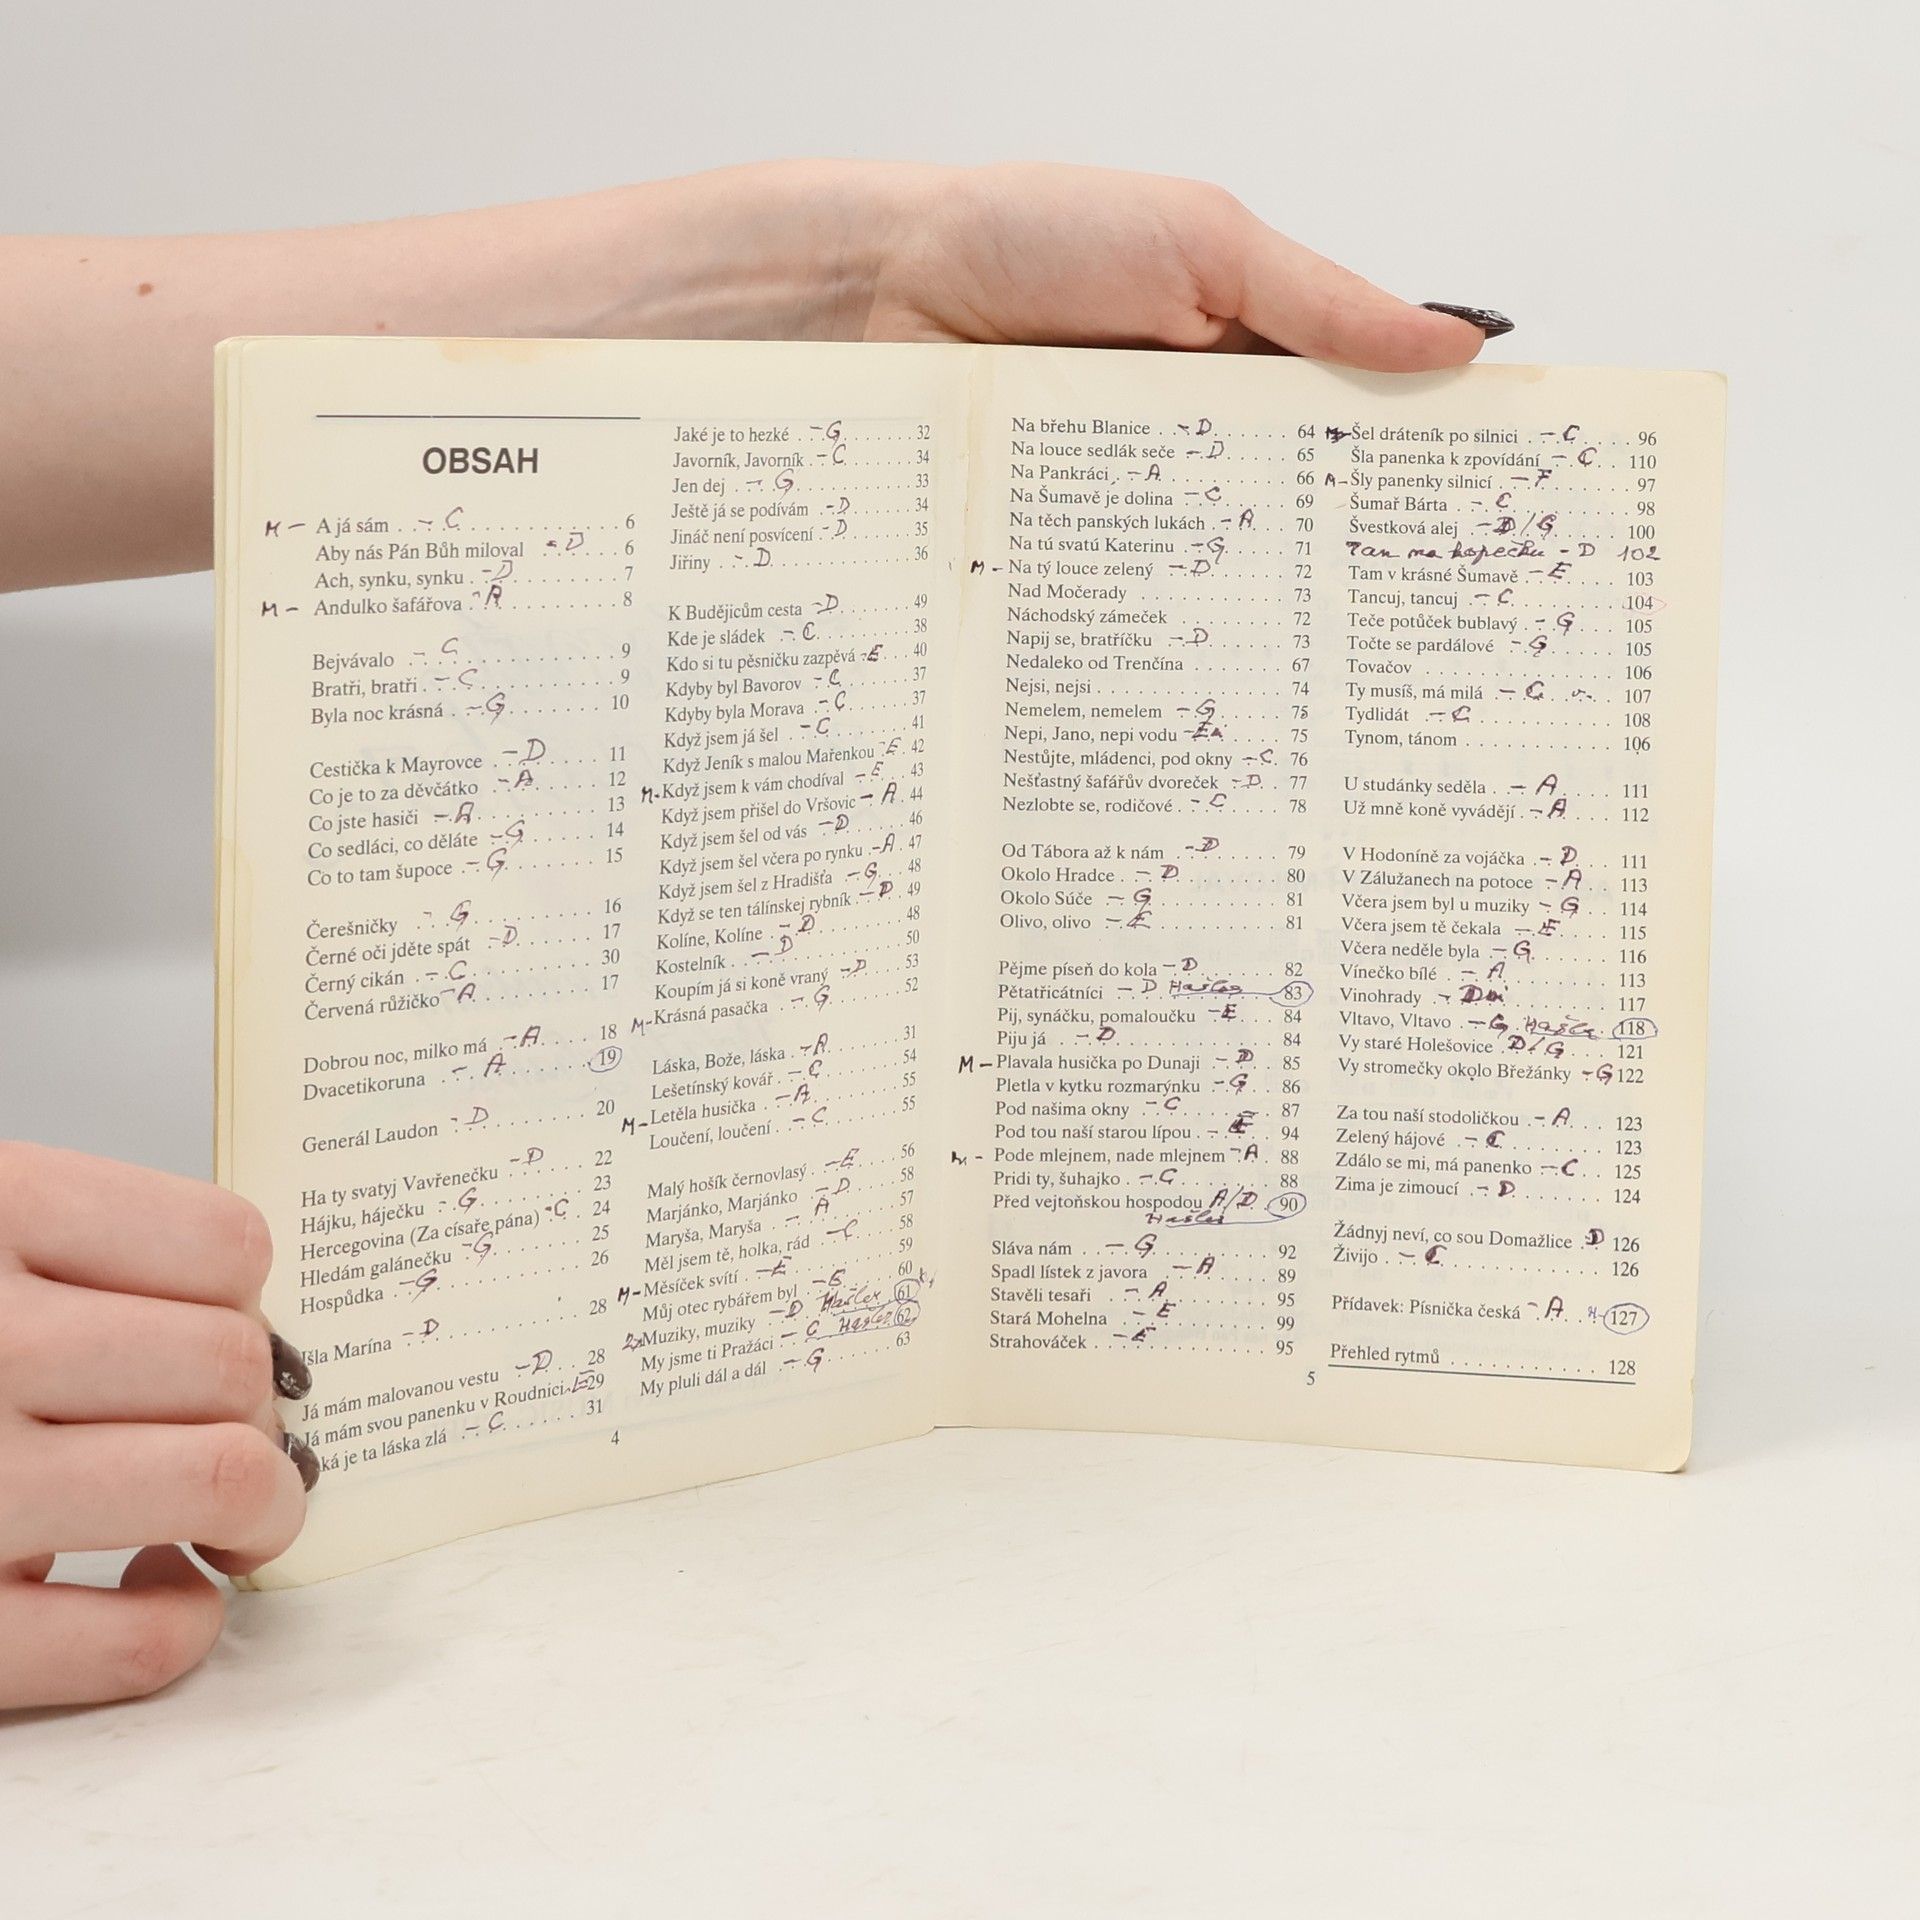 OBSAH
M – A já sám . . – C . . . . . . . . . . . 6
Aby nás Pán Bůh miloval – D . . . . 6
Ach, synku, synku . – D . . . . . . . . 7
M – Andulko šafářova – A . . . . . . . . 8
Bejvávalo – C . . . . . . . . . . . . 9
Bratři, bratři . – C . . . . . . . . . . 9
Byla noc krásná . – G . . . . . . . 10
Cestička k Mayrovce – D . . . . 11
Co je to za děvčátko – A . . . . . 12
Co jste hasiči – A . . . . . . . . . 13
Co sedláci, co děláte – G . . . . . 14
Co to tam šupoce – G . . . . . . . 15
Čerešničky – G . . . . . . . . . 16
Černé oči jděte spát – D . . . . . 17
Černý cikán – C . . . . . . . . . 30
Červená růžičko – A . . . . . . . 17
Dobrou noc, milko má – A . . . . 18
Dvacetikoruna – A . . . . . . . . 19
Generál Laudon – D . . . . . . . 20
Ha ty svatyj Vavřenečku – D . . . 22
Hájku, háječku – G . . . . . . . . 23
Hercegovina (Za císaře pána) – C . 24
Hledám galánečku – G . . . . . . 25
Hospůdka – G . . . . . . . . . . 26
Išla Marína – D . . . . . . . . . 28
Já mám malovanou vestu – D . . 28
Já mám svou panenku v Roudnici – E 29
ká je ta láska zlá – C . . . . . 31
4
Jaké je to hezké . – G . . . . . . . 32
Javorník, Javorník . – C . . . . . . 34
Jen dej . – G . . . . . . . . . . . 33
Ještě já se podívám – D . . . . . . 34
Jináč není posvícení – D . . . . . . 35
Jiřiny – D . . . . . . . . . . . . 36
K Budějicům cesta – D . . . . . . 49
Kde je sládek – C . . . . . . . . . 38
Kdo si tu pěsničku zazpěvá – E . . . 40
Kdyby byl Bavorov – C . . . . . . 37
Kdyby byla Morava – C . . . . . . 37
Když jsem já šel – C . . . . . . . 41
Když Jeník s malou Mařenkou – E . 42
M – Když jsem k vám chodíval – E . . . 43
Když jsem přišel do Vršovic – A . 44
Když jsem šel od vás – D . . . . . 46
Když jsem šel včera po rynku – A . 47
Když jsem šel z Hradišťa – G . . . 48
Když se ten tálínskej rybník – D . 49
Kolíne, Kolíne – D . . . . . . . . 48
Kostelník – D . . . . . . . . . . 50
Koupím já si koně vraný – D . . . 53
M – Krásná pasačka – G . . . . . . . 52
Láska, Bože, láska . – A . . . . . . 31
Lešetínský kovář . – C . . . . . . . 54
M – Letěla husička – A . . . . . . . . 55
Loučení, loučení – C . . . . . . . 55
Malý hošík černovlasý – E . . . . 56
Marjánko, Marjánko – D . . . . . 58
Maryša, Maryša – A . . . . . . . 57
Měl jsem tě, holka, rád – C . . . . 58
M – Měsíček svítí – E . . . . . . . . . 59
Můj otec rybářem byl – G . . . . . 60
2x Muziky, muziky – D Hašler 61
My jsme ti Pražáci – C Hašler 62
My pluli dál a dál – G . . . . . . 63
Na břehu Blanice . . – D . . . . . . 64
Na louce sedlák seče – D . . . . . 65
Na Pankráci, – A . . . . . . . . . 66
Na Šumavě je dolina – C . . . . . 69
Na těch panských lukách . – A . . . 70
Na tú svatú Katerinu – G . . . . . 71
M – Na tý louce zelený – D . . . . . . 72
Nad Močerady . . . . . . . . . . 73
Náchodský zámeček . . . . . . . 72
Napij se, bratříčku – D . . . . . . 73
Nedaleko od Trenčína . . . . . . . 67
Nejsi, nejsi . . . . . . . . . . . . 74
Nemelem, nemelem – G . . . . . . 75
Nepi, Jano, nepi vodu – E . . . . 75
Nestůjte, mládenci, pod okny – C . 76
Nešťastný šafářův dvoreček – D . . 77
Nezlobte se, rodičové . – C . . . . . 78
Od Tábora až k nám – D . . . . . 79
Okolo Hradce . – D . . . . . . . . 80
Okolo Súče – G . . . . . . . . . 81
Olivo, olivo – E . . . . . . . . . 81
Pějme píseň do kola – D . . . . . 82
Pětatřicátníci – D Hašler 83
Pij, synáčku, pomaloučku – E . . . 84
Piju já – D . . . . . . . . . . . 84
M – Plavala husička po Dunaji – D . . 85
Pletla v kytku rozmarýnku – G . . 86
Pod našima okny – C . . . . . . . 87
Pod tou naší starou lípou . – E . . . 94
M – Pode mlejnem, nade mlejnem – A . 88
Pridi ty, šuhajko – G . . . . . . . 88
Před vejtoňskou hospodou A/D . . 90
Hašler
Sláva nám – G . . . . . . . . . . 92
Spadl lístek z javora – A . . . . . 89
Stavěli tesaři – A . . . . . . . . . 95
Stará Mohelna – E . . . . . . . . 99
Strahováček . . – E . . . . . . . . 95
5
M – Šel dráteník po silnici – C . . . . 96
Šla panenka k zpovídání – C . . 110
M – Šly panenky silnicí . – F . . . . . 97
Šumař Bárta – C . . . . . . . . . 98
Švestková alej – D/G . . . . . . 100
Tan na kopečku – D 102
Tam v krásné Šumavě – E . . . . 103
Tancuj, tancuj – C . . . . . . . . 104
Teče potůček bublavý . – G . . . 105
Točte se pardálové – G . . . . . 105
Tovačov . . . . . . . . . . . . . 106
Ty musíš, má milá – C . . . . . 107
Tydlidát – C . . . . . . . . . . . 108
Tynom, tánom . . . . . . . . . . 106
U studánky seděla . – A . . . . . 111
Už mně koně vyvádějí . – A . . . 112
V Hodoníně za vojáčka . – D . . 111
V Zálužanech na potoce – A . . 113
Včera jsem byl u muziky – G . . 114
Včera jsem tě čekala – E . . . . 115
Včera neděle byla – G . . . . . . 116
Vínečko bílé – A . . . . . . . . 113
Vinohrady – D . . . . . . . . . 117
Vltavo, Vltavo . – G Hašler 118
Vy staré Holešovice D/G . . . . 121
Vy stromečky okolo Břežánky – G 122
Za tou naší stodoličkou – A . . . 123
Zelený hájové – C . . . . . . . . 123
Zdálo se mi, má panenko – C . . 125
Zima je zimoucí – D . . . . . . . 124
Žádnyj neví, co sou Domažlice – D 126
Živijo – C . . . . . . . . . . . . 126
Přídavek: Písnička česká – A . . H – 127
Přehled rytmů . . . . . . . . . . 128